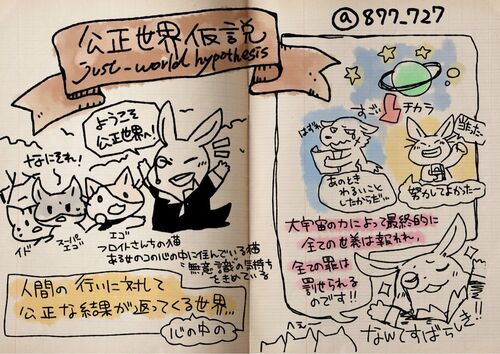 公正世界仮説
just-world hypothesis
ようこそ
公正世界へ!
なにそれ!
イド
スーパー
エゴ
エゴ
フロイトさんちの猫
ある女のコの心の中に住んでいる猫
無意識の気持ち
をきめている
人間の行いに対して
公正な結果が返ってくる世界…
心の中の
@877_727
すごい
チカラ
はずれ
当たった
あのとき
わるいこと
したからだ…
努力してよかった〜
大宇宙の力によって最終的に
全ての正義は報われ、
全ての罪は
罰せられる
のです!!
へぇ〜
なんてすばらしき!!